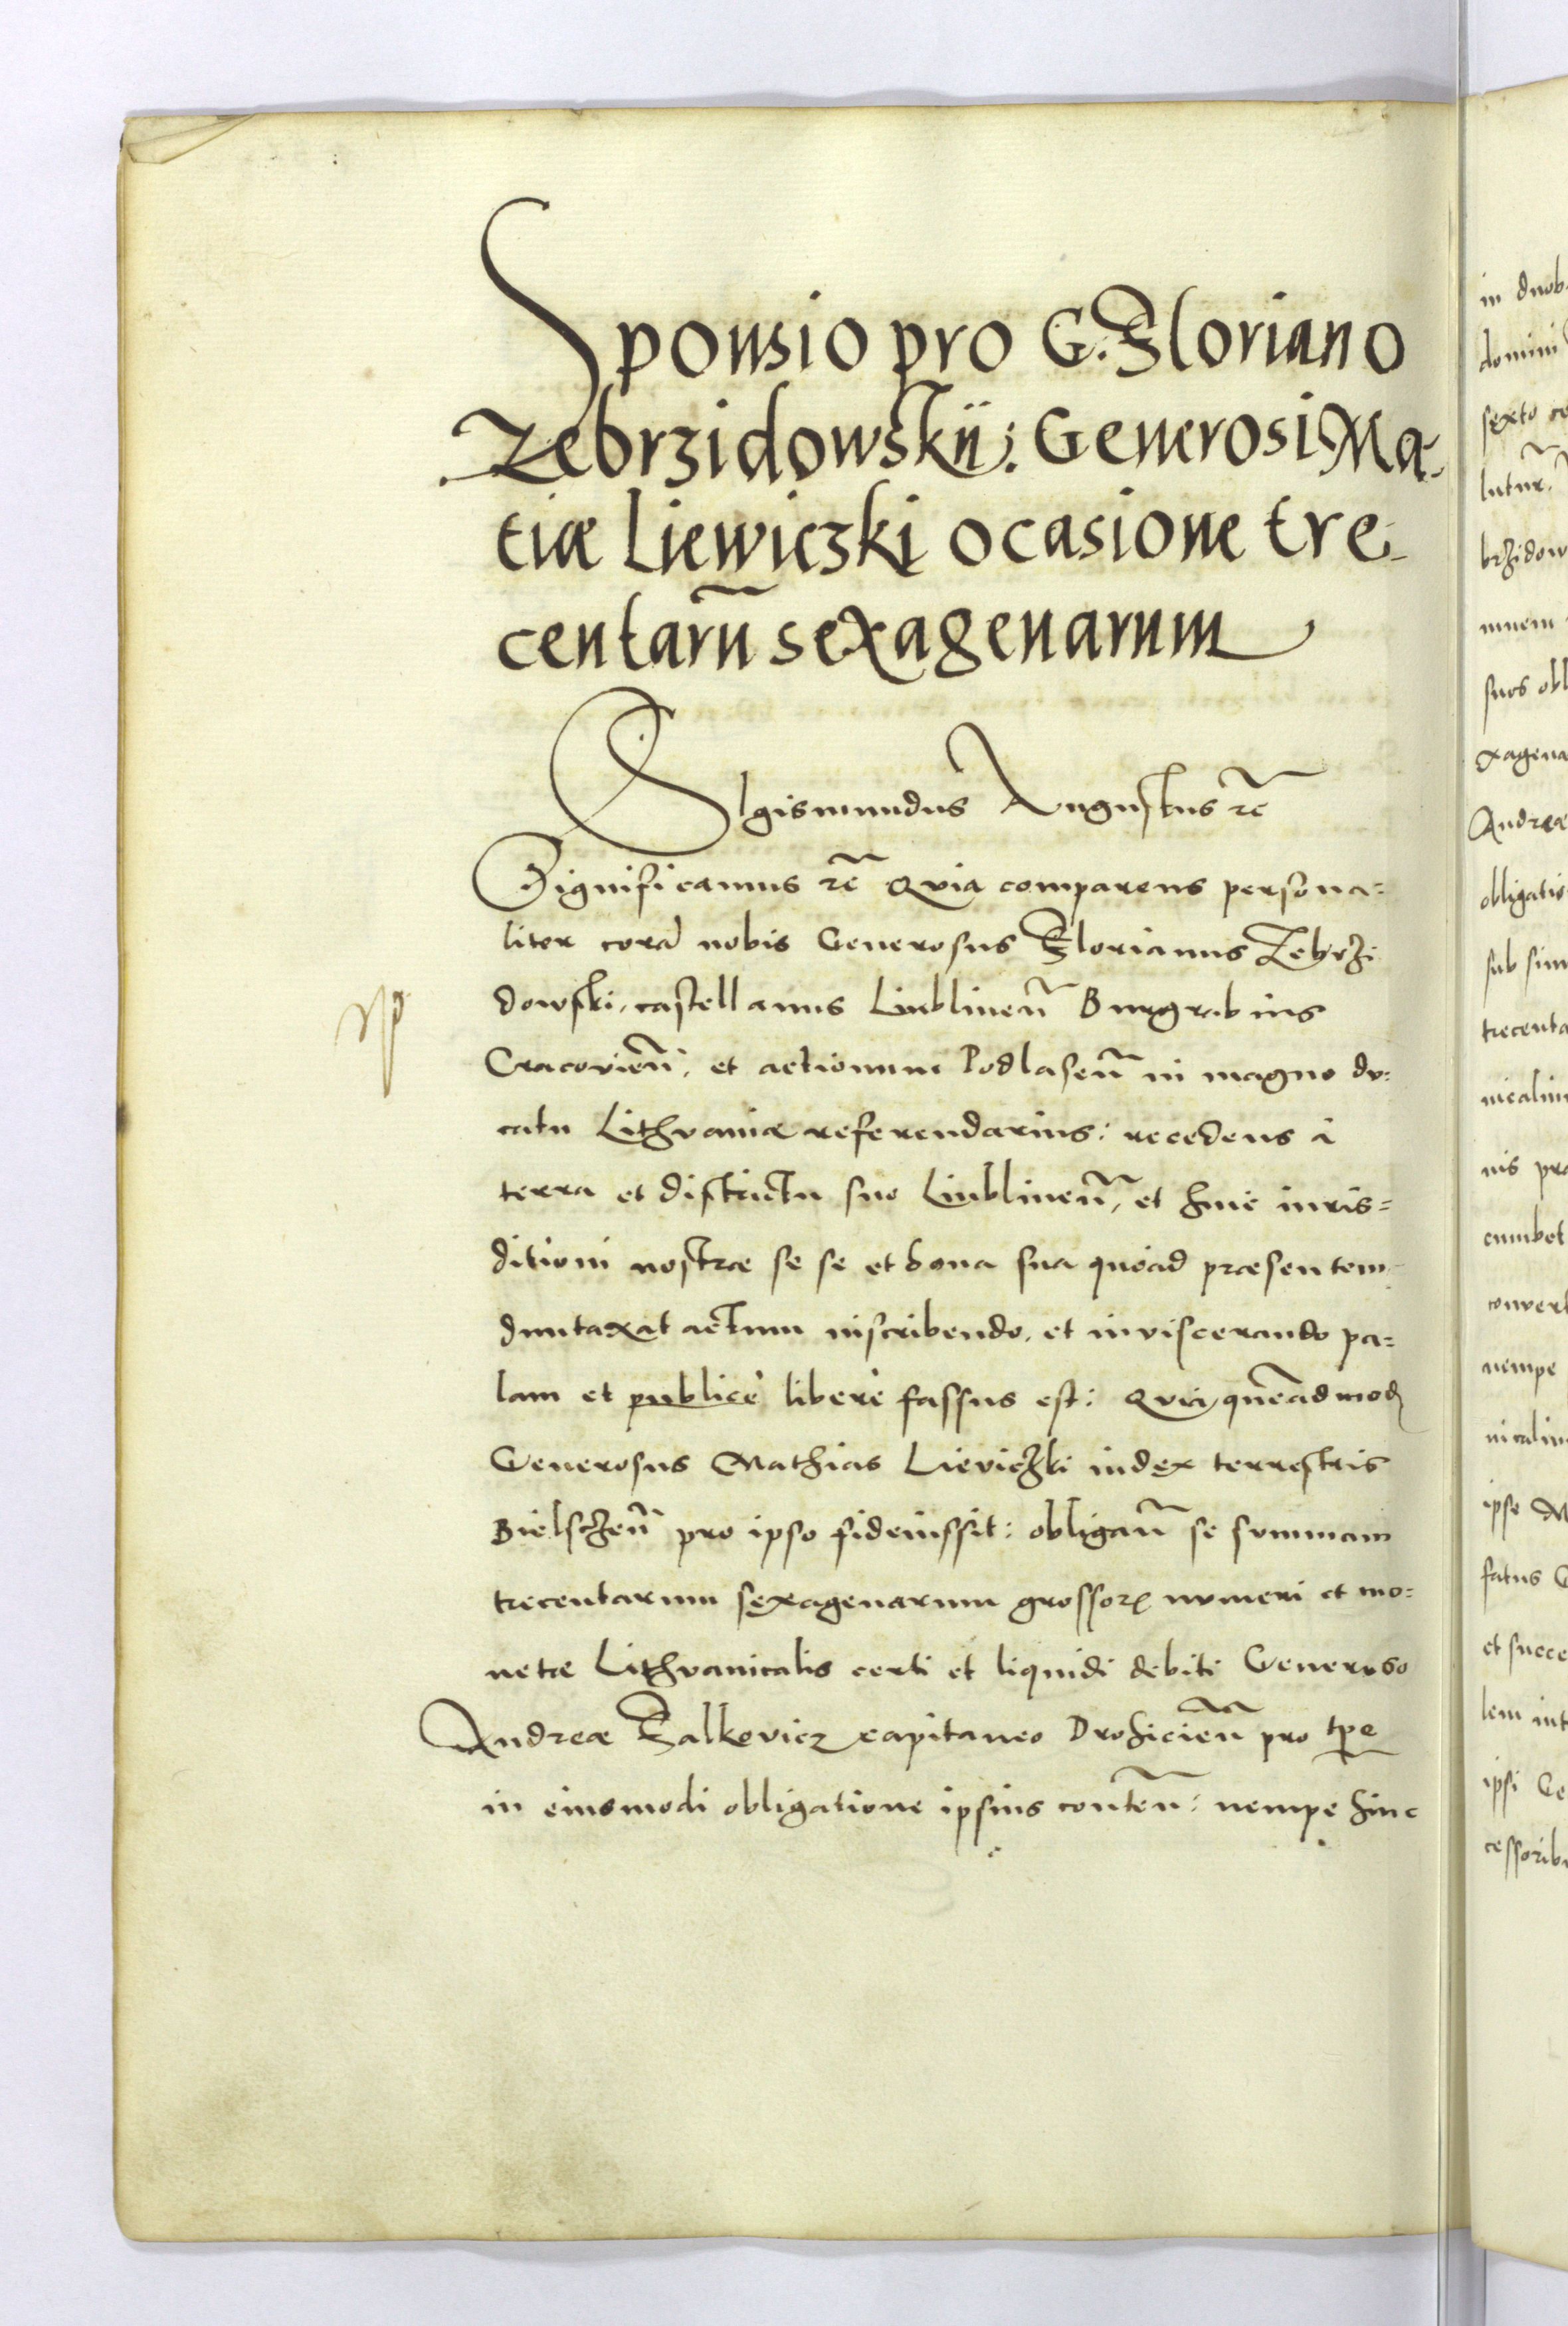 Sponsio pro G. Floriano
Zebrzidowskij: Generosi Ma-
tiæ Liewiczki ocasione tre-
centarū sexagenarum
SIgismundus Augustus rc̃
Significamus rc̃ Quia comparens persona=
liter corā nobis Generosus Florianus Zebrzi
dowski, castellanus Liublinen̄ Burgrabius
Cracovien̄, et actionum Podlasen̄ in magno du=
catu Lithvaniæ referendarius: recedens à
terra et districtu suo Liublinen̄, et huic iuris=
ditioni nostræ se se et bona sua quoad præsentem
duntaxat actum inscribendo, et inviscerando pa=
lam et publicè liberè fassus est: Quia, quēadmodꝫ
Generosus Mathias Lieviczki iudex terrestris
Bielsczen̄ pro ipso fideiussit: obligan̄ se summam
trecentarum sexagenarum grossorꝫ numeri et mo=
netæ Lithvanicalis certi et liquidi debiti Generoso
Andreæ Falkovicz capitaneo Drohicien̄ pro tp̄e
in eiusmodi obligatione ipsius conten̄: nempe hinc
in duob
domini
sexto ce
lutur,
brzidow
suos obl
xagena
Andreæ
obligatio
sub sim
trecenta
nicalium
nis pro
cumbet
convert
nempe
nicalium
ipse M
fatus G
et succe
lem int
ipsi Ge
cessorib